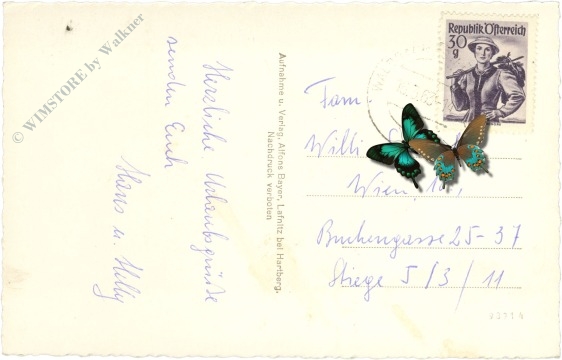 © WIMSTORE by Walkner
Herzliche Urlaubsgrüße
senden Euch
Hans u. Helly
Aufnahme u. Verlag, Alfons Bayer, Lafnitz bei Hartberg.
Nachdruck verboten
REPUBLIK ÖSTERREICH
30
g
Fam
Willi
Wien, 10,
Buchengasse 25-37
Stiege 5/3/11